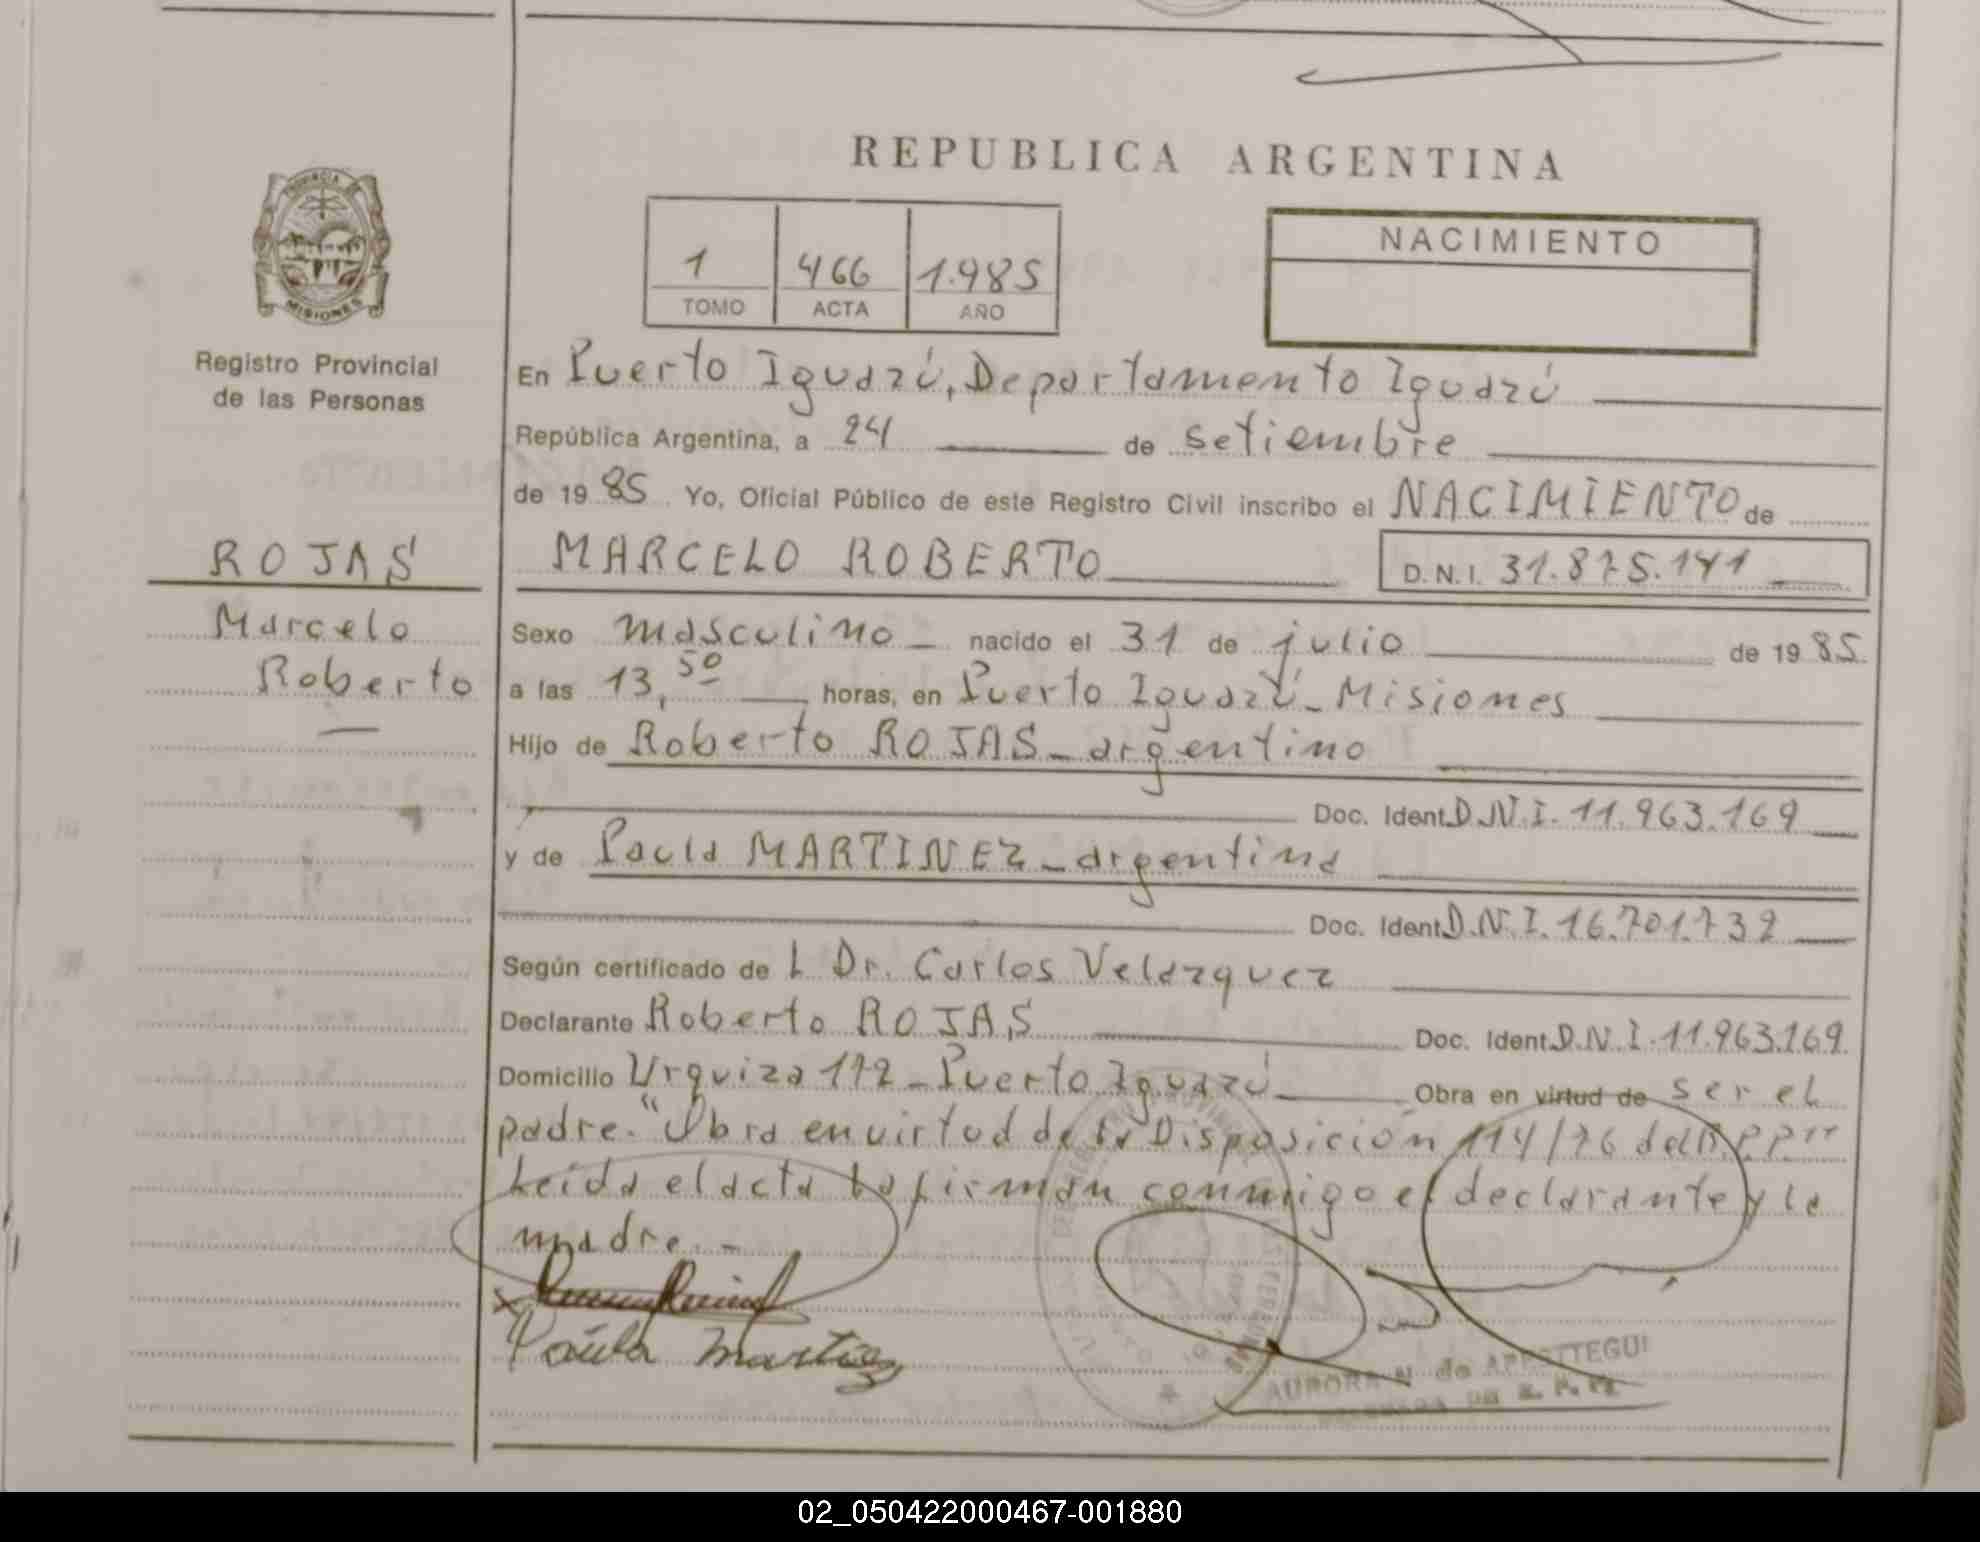 REPUBLICA ARGENTINA
PROVINCIA DE
MISIONES
Registro Provincial
de las Personas
1 466 1.985
TOMO ACTA AÑO
NACIMIENTO
En Puerto Iguazú, Departamento Iguazú
República Argentina, a 24 de setiembre
de 1985. Yo, Oficial Público de este Registro Civil inscribo el NACIMIENTO de
ROJAS
Marcelo
Roberto
MARCELO ROBERTO D.N.I. 31.875.141
Sexo masculino nacido el 31 de julio de 1985.
a las 13,50 horas, en Puerto Iguazú - Misiones
Hijo de Roberto ROJAS - argentino
Doc. Ident. D.N.I. 11.963.169
y de Paula MARTINEZ - argentina
Doc. Ident. D.N.I. 16.701.732
Según certificado de L Dr. Carlos Velazquez
Declarante Roberto ROJAS Doc. Ident. D.N.I. 11.963.169.
Domicilio Urquiza 172 - Puerto Iguazú Obra en virtud de ser el
padre. "Obra en virtud de la Disposición 114/76 del R.P.P."
Leída el acta la firman conmigo el declarante y la
madre. -
Paula Martinez
AURORA N. de APESTTEGUI
02_050422000467-001880